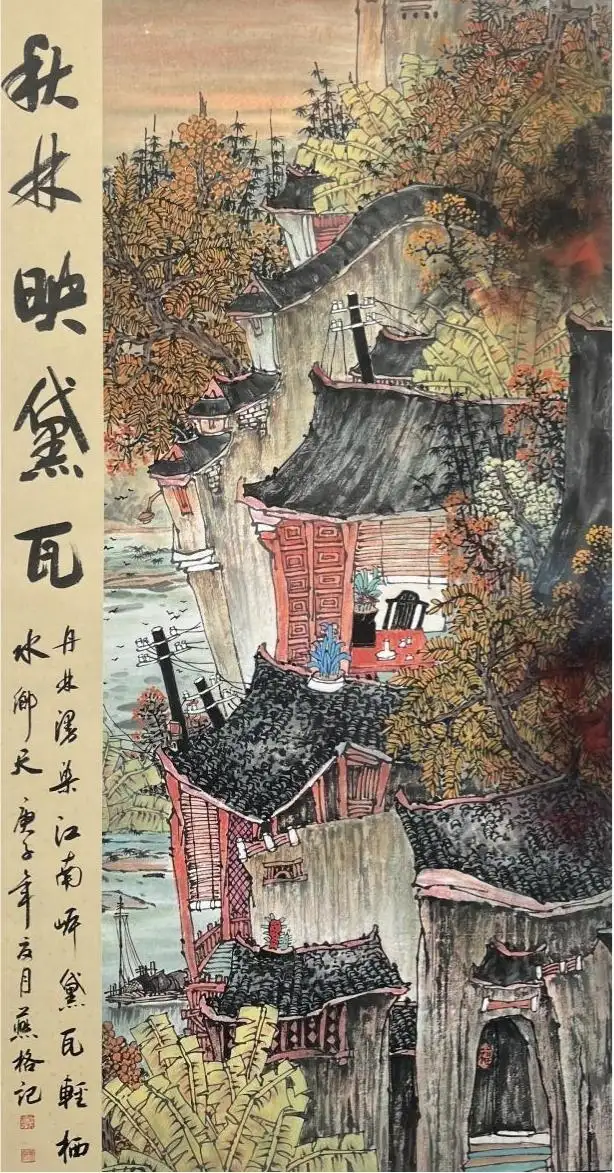 秋林映黛瓦
丹林漫染江南岸黛瓦輕栖
水鄉天庚子年月燕格记